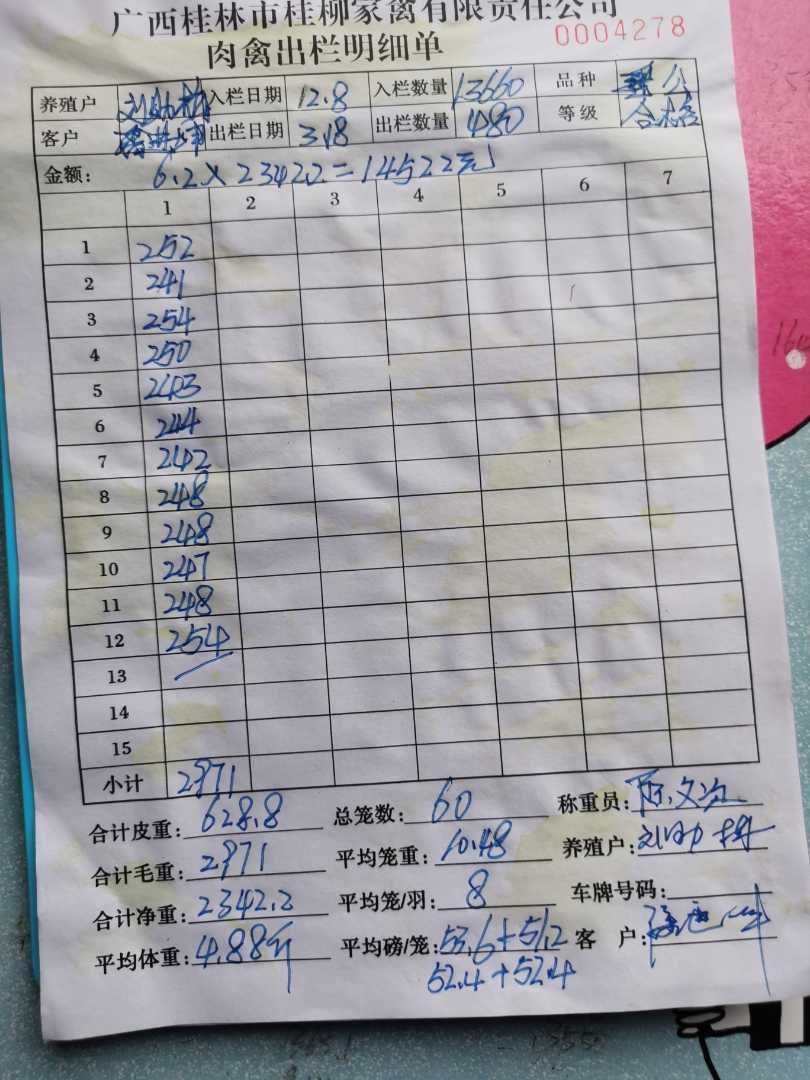 广西桂林市桂柳家禽有限责任公司
肉禽出栏明细单 0004278
养殖户 入栏日期 12.8 入栏数量 13660 品种
客户 出栏日期 3.18 出栏数量 480 等级 合格
金额: 6.2×2342.2=14522元
1 2 3 4 5 6 7
1 252
2 241
3 254
4 250
5 243
6 244
7 242
8 248
9 248
10 247
11 248
12 254
13
14
15
小计 2971
合计皮重: 628.8 总笼数: 60 称重员:
合计毛重: 2971 平均笼重: 10.48 养殖户:
合计净重: 2342.2 平均笼/羽: 8 车牌号码:
平均体重: 4.88斤 平均磅/笼: 53.6+51.2 客户:
52.4+52.4